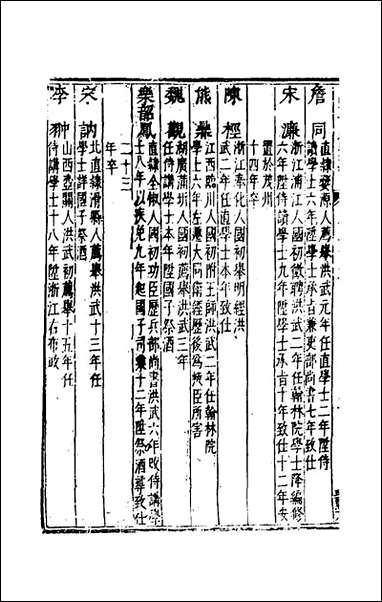 詹同
直隸婺源人薦舉洪武元年任直學士二年陞侍
讀學士六年陞學士承旨兼吏部尚書七年致仕
宋濂
浙江浦江人國初徵聘洪武二年任翰林院學士降編修
六年陞侍講學士九年陞學士承旨十年致仕十二年安
置於茂州
十四年卒
陳桱
浙江奉化人國初舉明經洪
武二年任直學士本年致仕
熊鼎
江西臨川人國初附王師洪武二年任翰林院
學士六年左遷大同衛經歷後為頑臣所害
魏觀
湖廣蒲圻人國初薦舉洪武三年
任侍講學士本年陞國子祭酒
樂韶鳳
直隸全椒人國初功臣歷兵部尚書洪武六年改侍講學
士八年以疾免九年起國子司業十二年陞祭酒尋致仕
二十三
年卒
宋訥
北直隸滑縣人薦舉洪武十三年任
學士詳國子祭酒
李翀
山西壺關人洪武初薦舉十五年任
侍講學士十八年陞浙江右布政